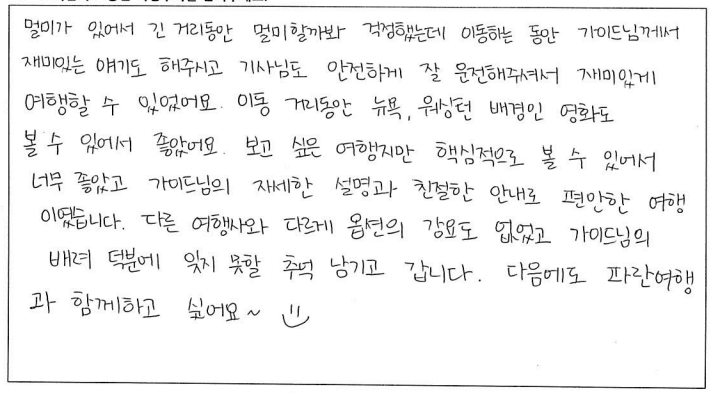 멀미가 있어서 긴 거리동안 멀미할까봐 걱정했는데 이동하는 동안 가이드님께서
재미있는 얘기도 해주시고 기사님도 안전하게 잘 운전해주셔서 재미있게
여행할 수 있었어요. 이동 거리동안 뉴욕, 워싱턴 배경인 영화도
볼 수 있어서 좋았어요. 보고 싶은 여행지만 핵심적으로 볼 수 있어서
너무 좋았고 가이드님의 자세한 설명과 친절한 안내로 편안한 여행
이였습니다. 다른 여행사와 다르게 옵션의 강요도 없었고 가이드님의
배려 덕분에 잊지 못할 추억 남기고 갑니다. 다음에도 파란여행
과 함께하고 싶어요~